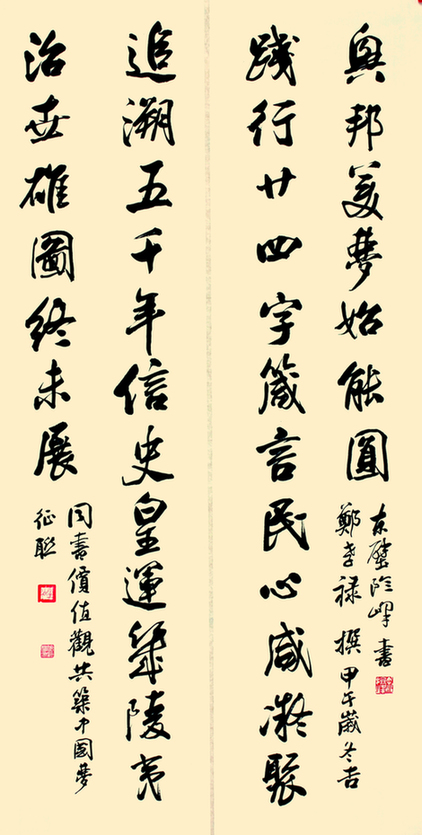 追溯五千年信史皇運幾陵夷
治世雄圖終未展
同書價值觀共築中國夢
征联
踐行廿四字箴言民心咸凝聚
興邦美夢始能圓
鄭孝禄撰甲午歲冬吉
东壁险峰書